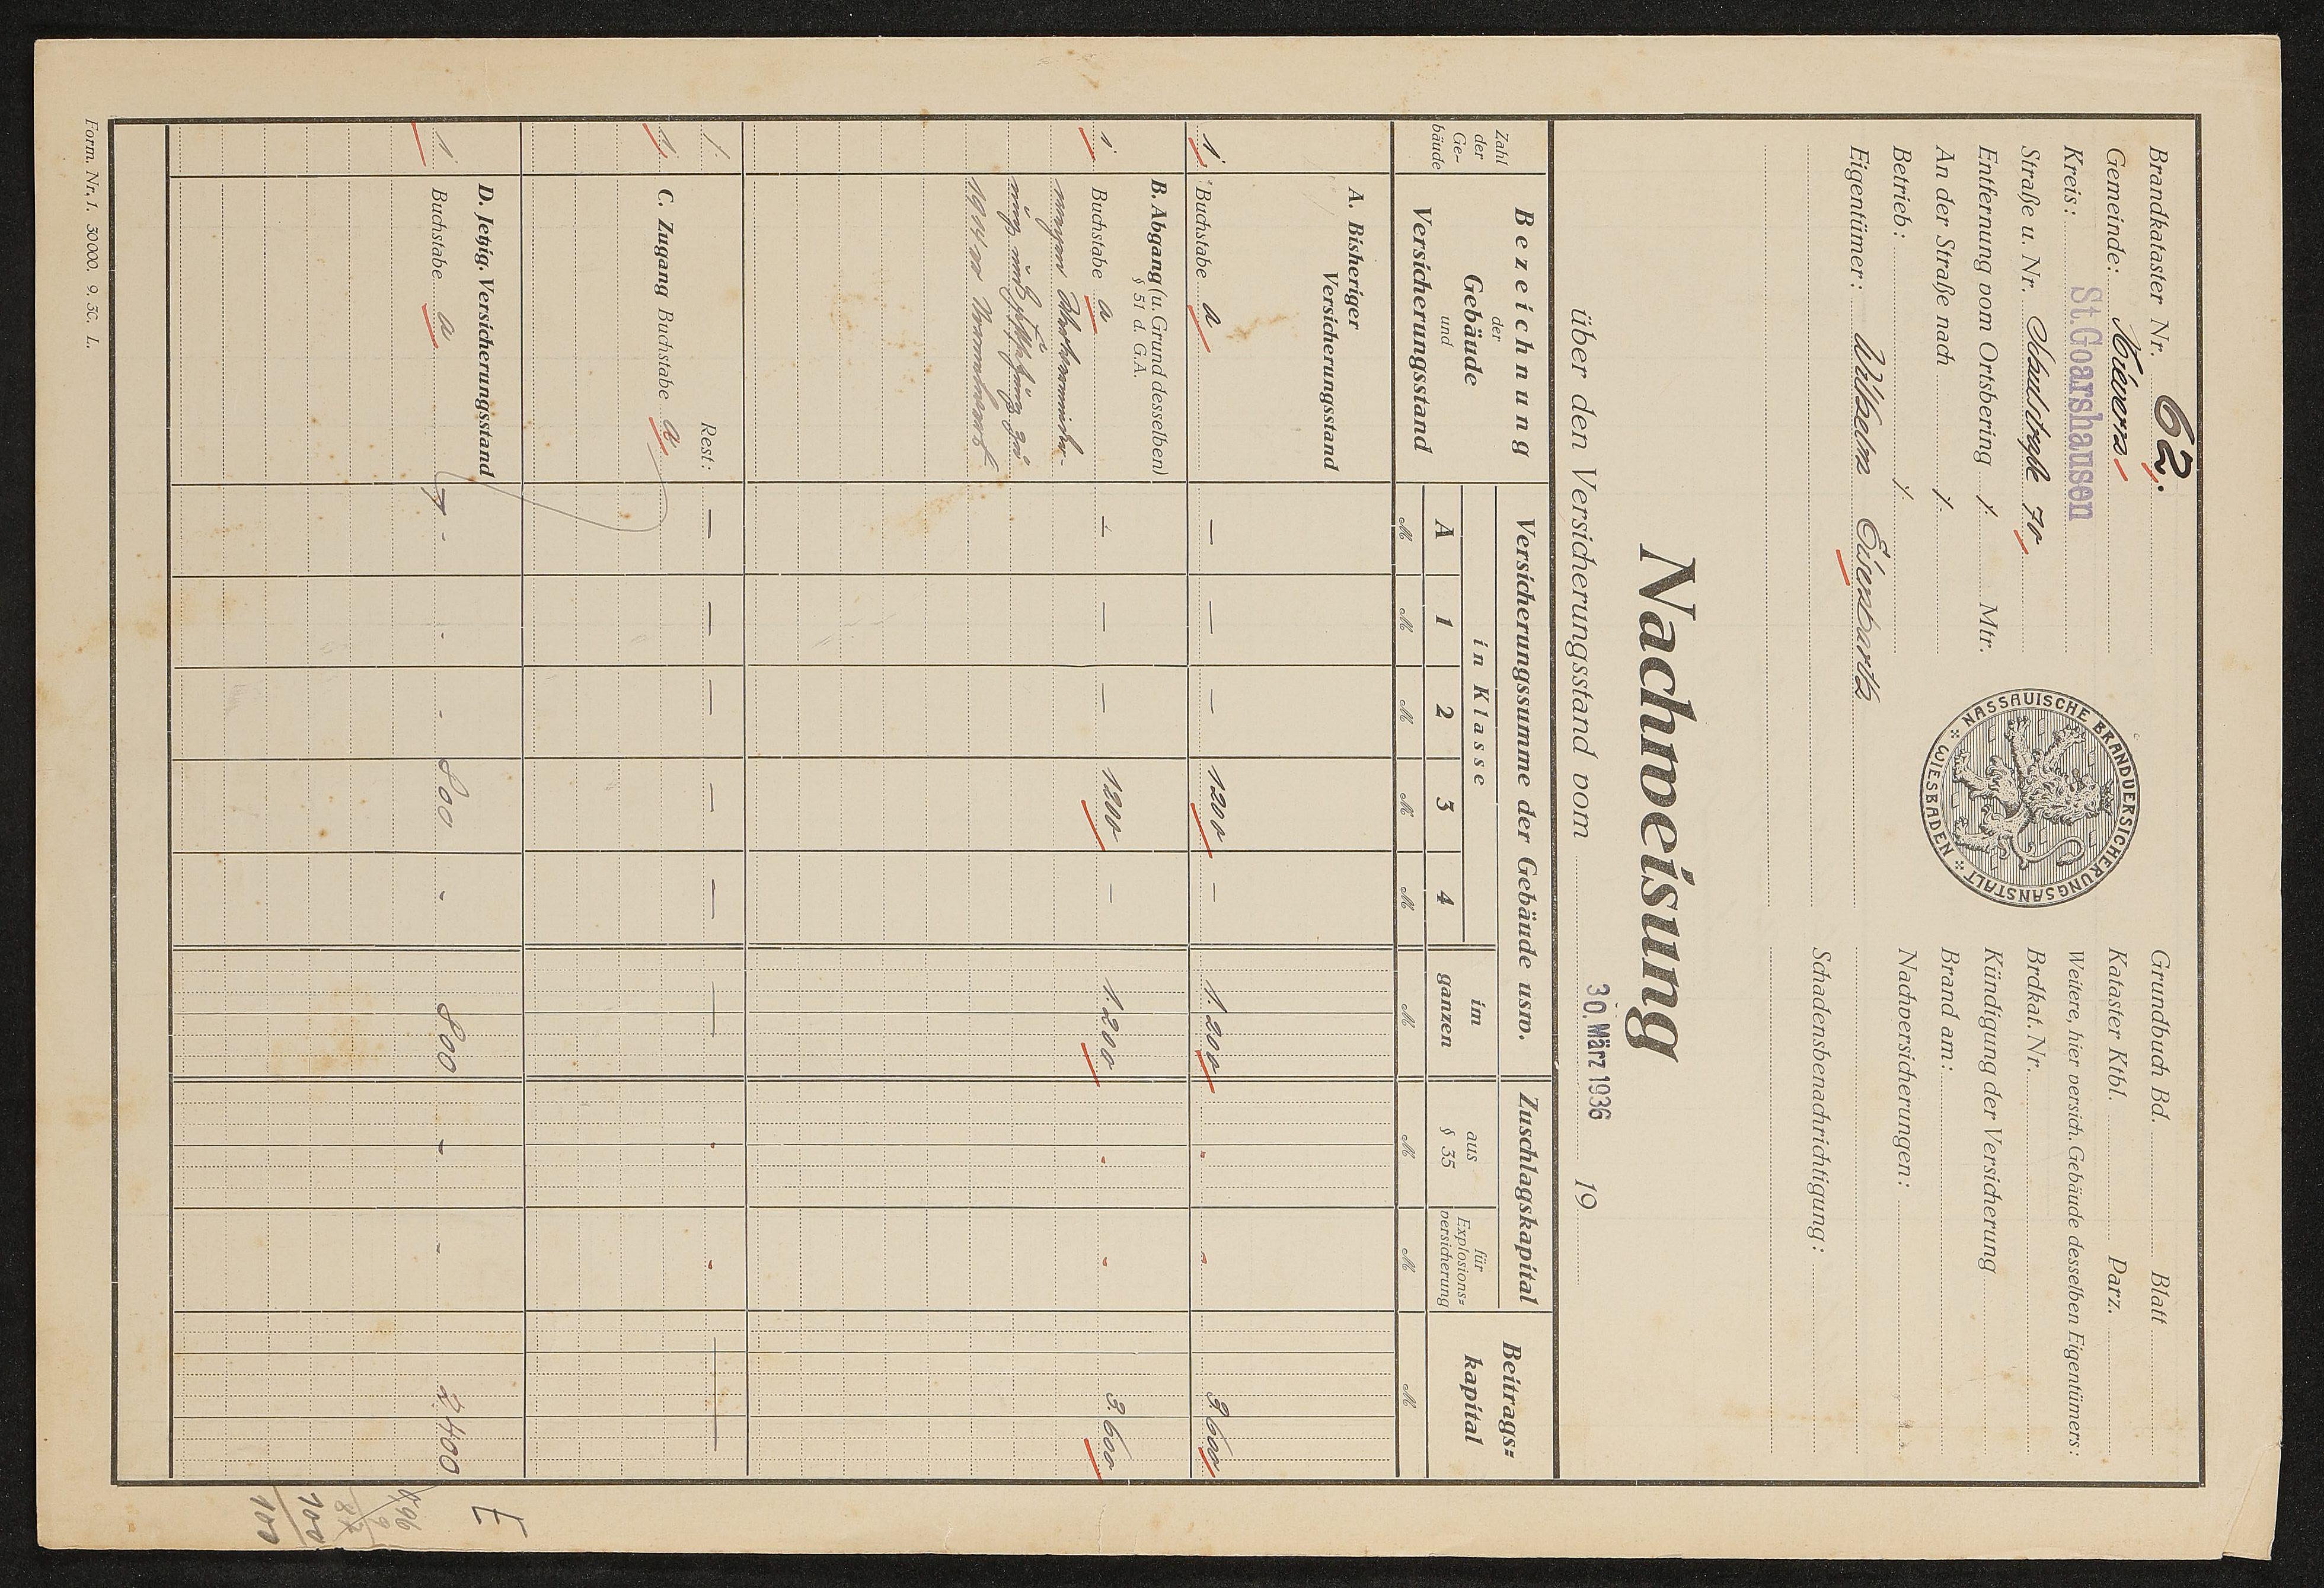 Brandkataster Nr. 62.
Gemeinde: Kevern
Kreis: St. Goarshausen
Straße u. Nr. Schulstraße 70
Entfernung vom Ortsbering ⁒ Mtr.
An der Straße nach ⁒
Betrieb: ⁒
Eigentümer: Wilhelm Eisenbarth
NASSAUISCHE BRANDVERSICHERUNGSANSTALT
WIESBADEN
Grundbuch Bd. Blatt
Kataster Ktbl. Parz.
Weitere, hier versich. Gebäude desselben Eigentümers:
Brdkat. Nr.
Kündigung der Versicherung
Brand am:
Nachversicherungen:
Schadensbenachrichtigung:
Nachweisung
über den Versicherungsstand vom 30. März 1936 19
Zahl der Ge-bäude
Bezeichnung
der
Gebäude
und
Versicherungsstand
Versicherungssumme der Gebäude usw.
in Klasse
A 1 2 3 4
im ganzen
Zuschlagskapital
aus § 35
für Explosions-versicherung
Beitrags-kapital
M M M M M M M M M
A. Bisheriger
Versicherungsstand
1. Buchstabe a — — — 1200 — 1.200 3.600
B. Abgang (u. Grund desselben)
§ 51 d. G.A.
1. Buchstabe a — — — 1200 — 1.200 3.600
wegen
1. Rest: — — — — — — —
1. C. Zugang Buchstabe a
D. Jetzig. Versicherungsstand
1. Buchstabe a - - - 800 - 800 - - 2.400
E
100
100
Form. Nr. 1. 30000. 9. 30. L.